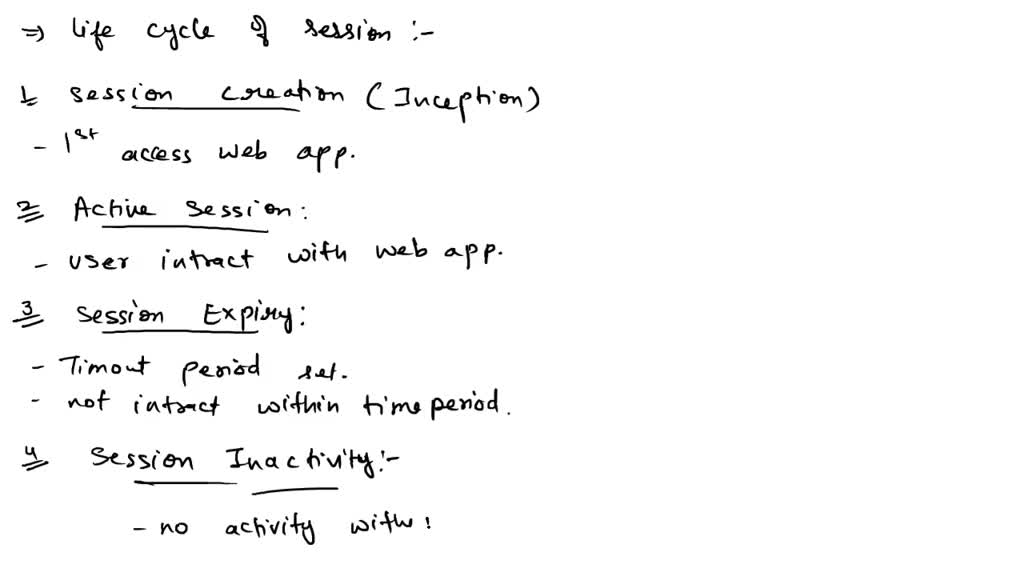 ⇒ life cycle of session :-
1 session creation (Inception)
- 1st access web app.
2 Active session:
- user intract with web app.
3 session Expiry:
- Timout period set.
- not intract within time period.
4 session Inactivity:-
- no activity with